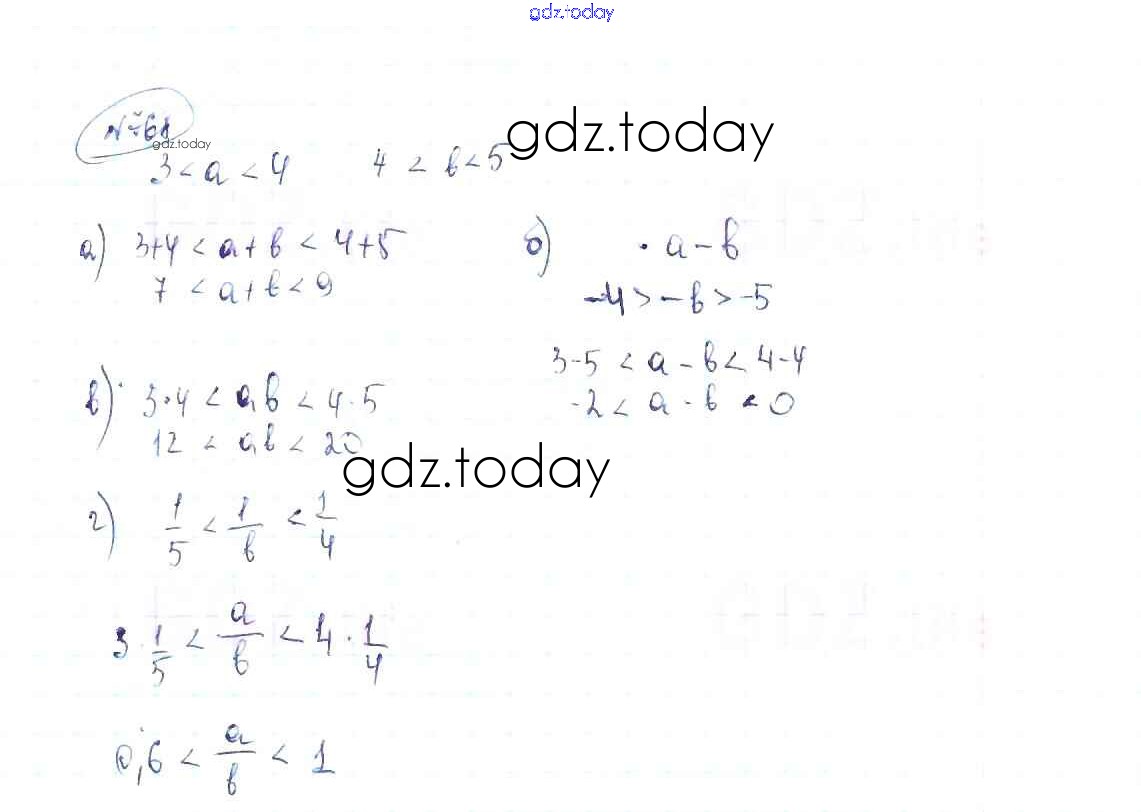 gdz.today
№68
gdz.today
gdz.today
3 < a < 4 4 < b < 5
а) 3+4 < a+b < 4+5
7 < a+b < 9
б) a - b
-4 > -b > -5
3-5 < a - b < 4-4
-2 < a - b < 0
в) 3·4 < ab < 4·5
12 < ab < 20
gdz.today
г) 1/5 < 1/b < 1/4
3·1/5 < a/b < 4·1/4
0,6 < a/b < 1